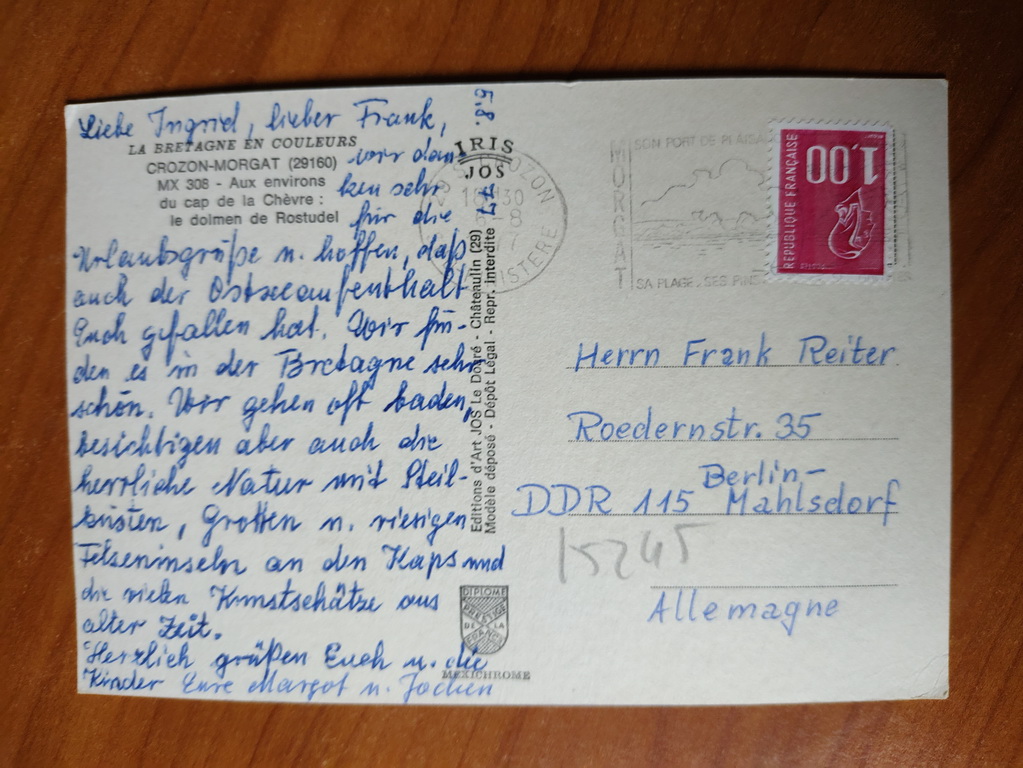 5.8.77
Liebe Ingrid, lieber Frank,
LA BRETAGNE EN COULEURS
CROZON-MORGAT (29160)
MX 308 - Aux environs
du cap de la Chèvre :
le dolmen de Rostudel
wir dan-
ken sehr
für die
Urlaubsgrüße u. hoffen, daß
auch der Ostseeaufenthalt
Euch gefallen hat. Wir fin-
den es in der Bretagne sehr
schön. Wir gehen oft baden,
besichtigen aber auch die
herrliche Natur mit Steil-
küsten, Grotten u. riesigen
Felseninseln an den Kaps und
die vielen Kunstschätze aus
alter Zeit.
Herzlich grüßen Euch u. die
Kinder Eure Margot u. Jochen
IRIS
JOS
Editions d'Art JOS Le Doaré - Châteaulin (29)
Modèle déposé - Dépôt Légal - Repr. interdite
DIPLOME
PRESTIGE
DE LA
FRANCE
MEXICHROME
29 CROZON
18H30
5-8
FINISTERE
MORGAT
SON PORT DE PLAISA
SA PLAGE . SES PINS
1,00
REPUBLIQUE FRANÇAISE
Herrn Frank Reiter
Roedernstr. 35
Berlin-
DDR 115 Mahlsdorf
15245
Allemagne